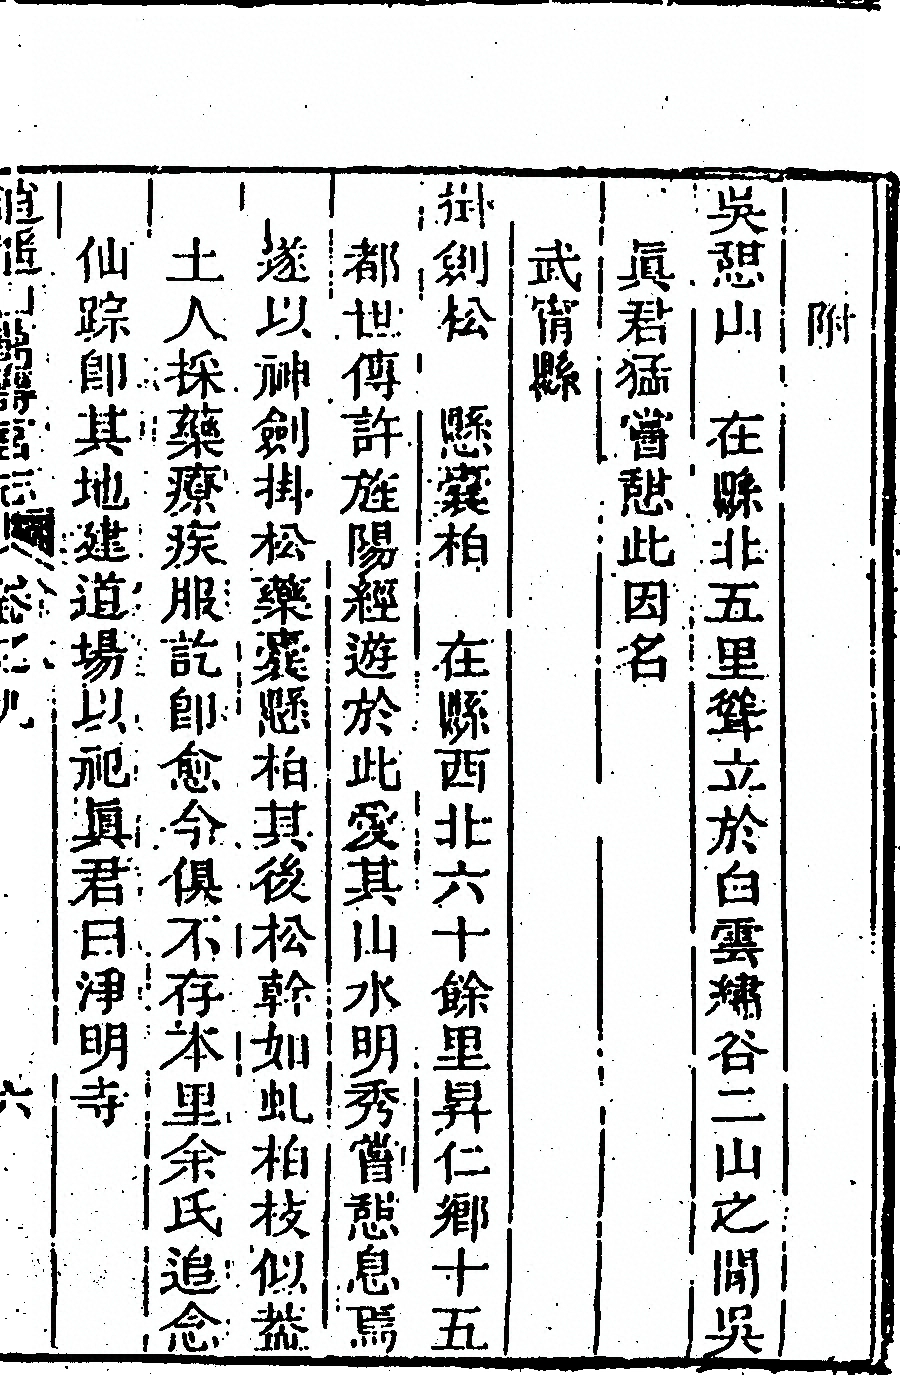 附
吳憇山　在縣北五里聳立於白雲繡谷二山之間吳
眞君猛嘗憇此因名
武甯縣
掛劍松　懸囊柏　在縣西北六十餘里昇仁鄉十五
都世傳許旌陽經遊於此愛其山水明秀嘗憇息焉
遂以神劍掛松藥囊懸柏其後松幹如虬柏枝似葢
土人採藥療疾服訖卽愈今俱不存本里余氏追念
仙踪卽其地建道場以祀眞君曰淨明寺
逍遙山萬壽宮志 卷之九 六